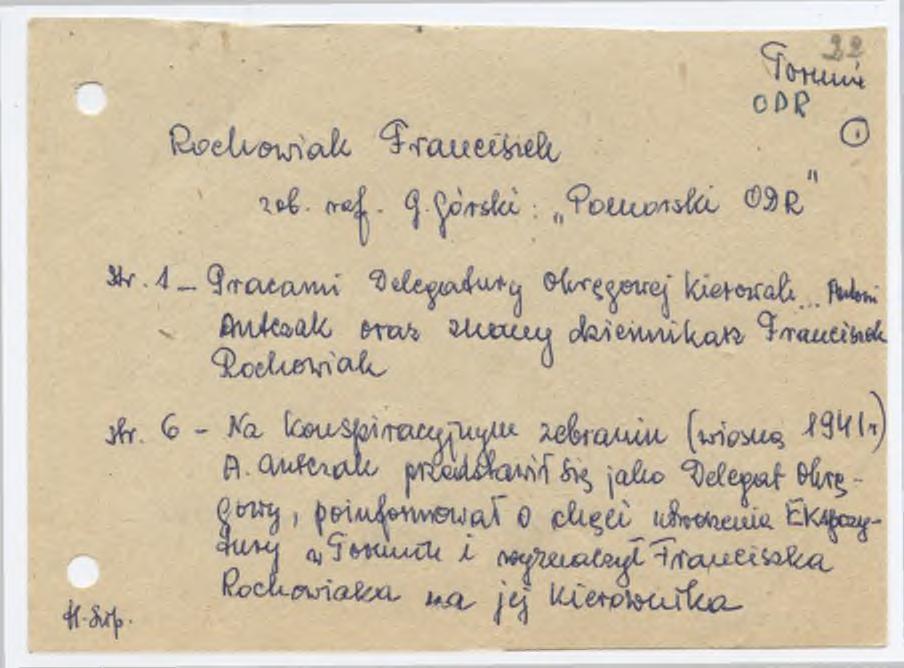 22
Toruń
ODR
1
Rochowiak Franciszek
zob. ref. G. Górski: „Pomorski ODR”
str. 1 – Pracami Delegatury Okręgowej kierowali... Antoni
Antczak oraz znany dziennikarz Franciszek
Rochowiak
str. 6 – Na konspiracyjnym zebraniu (wiosną 1941 r)
A. Antczak przedstawił się jako Delegat Okrę-
gowy, poinformował o chęci utworzenia Ekspozy-
tury w Toruniu i wyznaczył Franciszka
Rochowiaka na jej kierownika